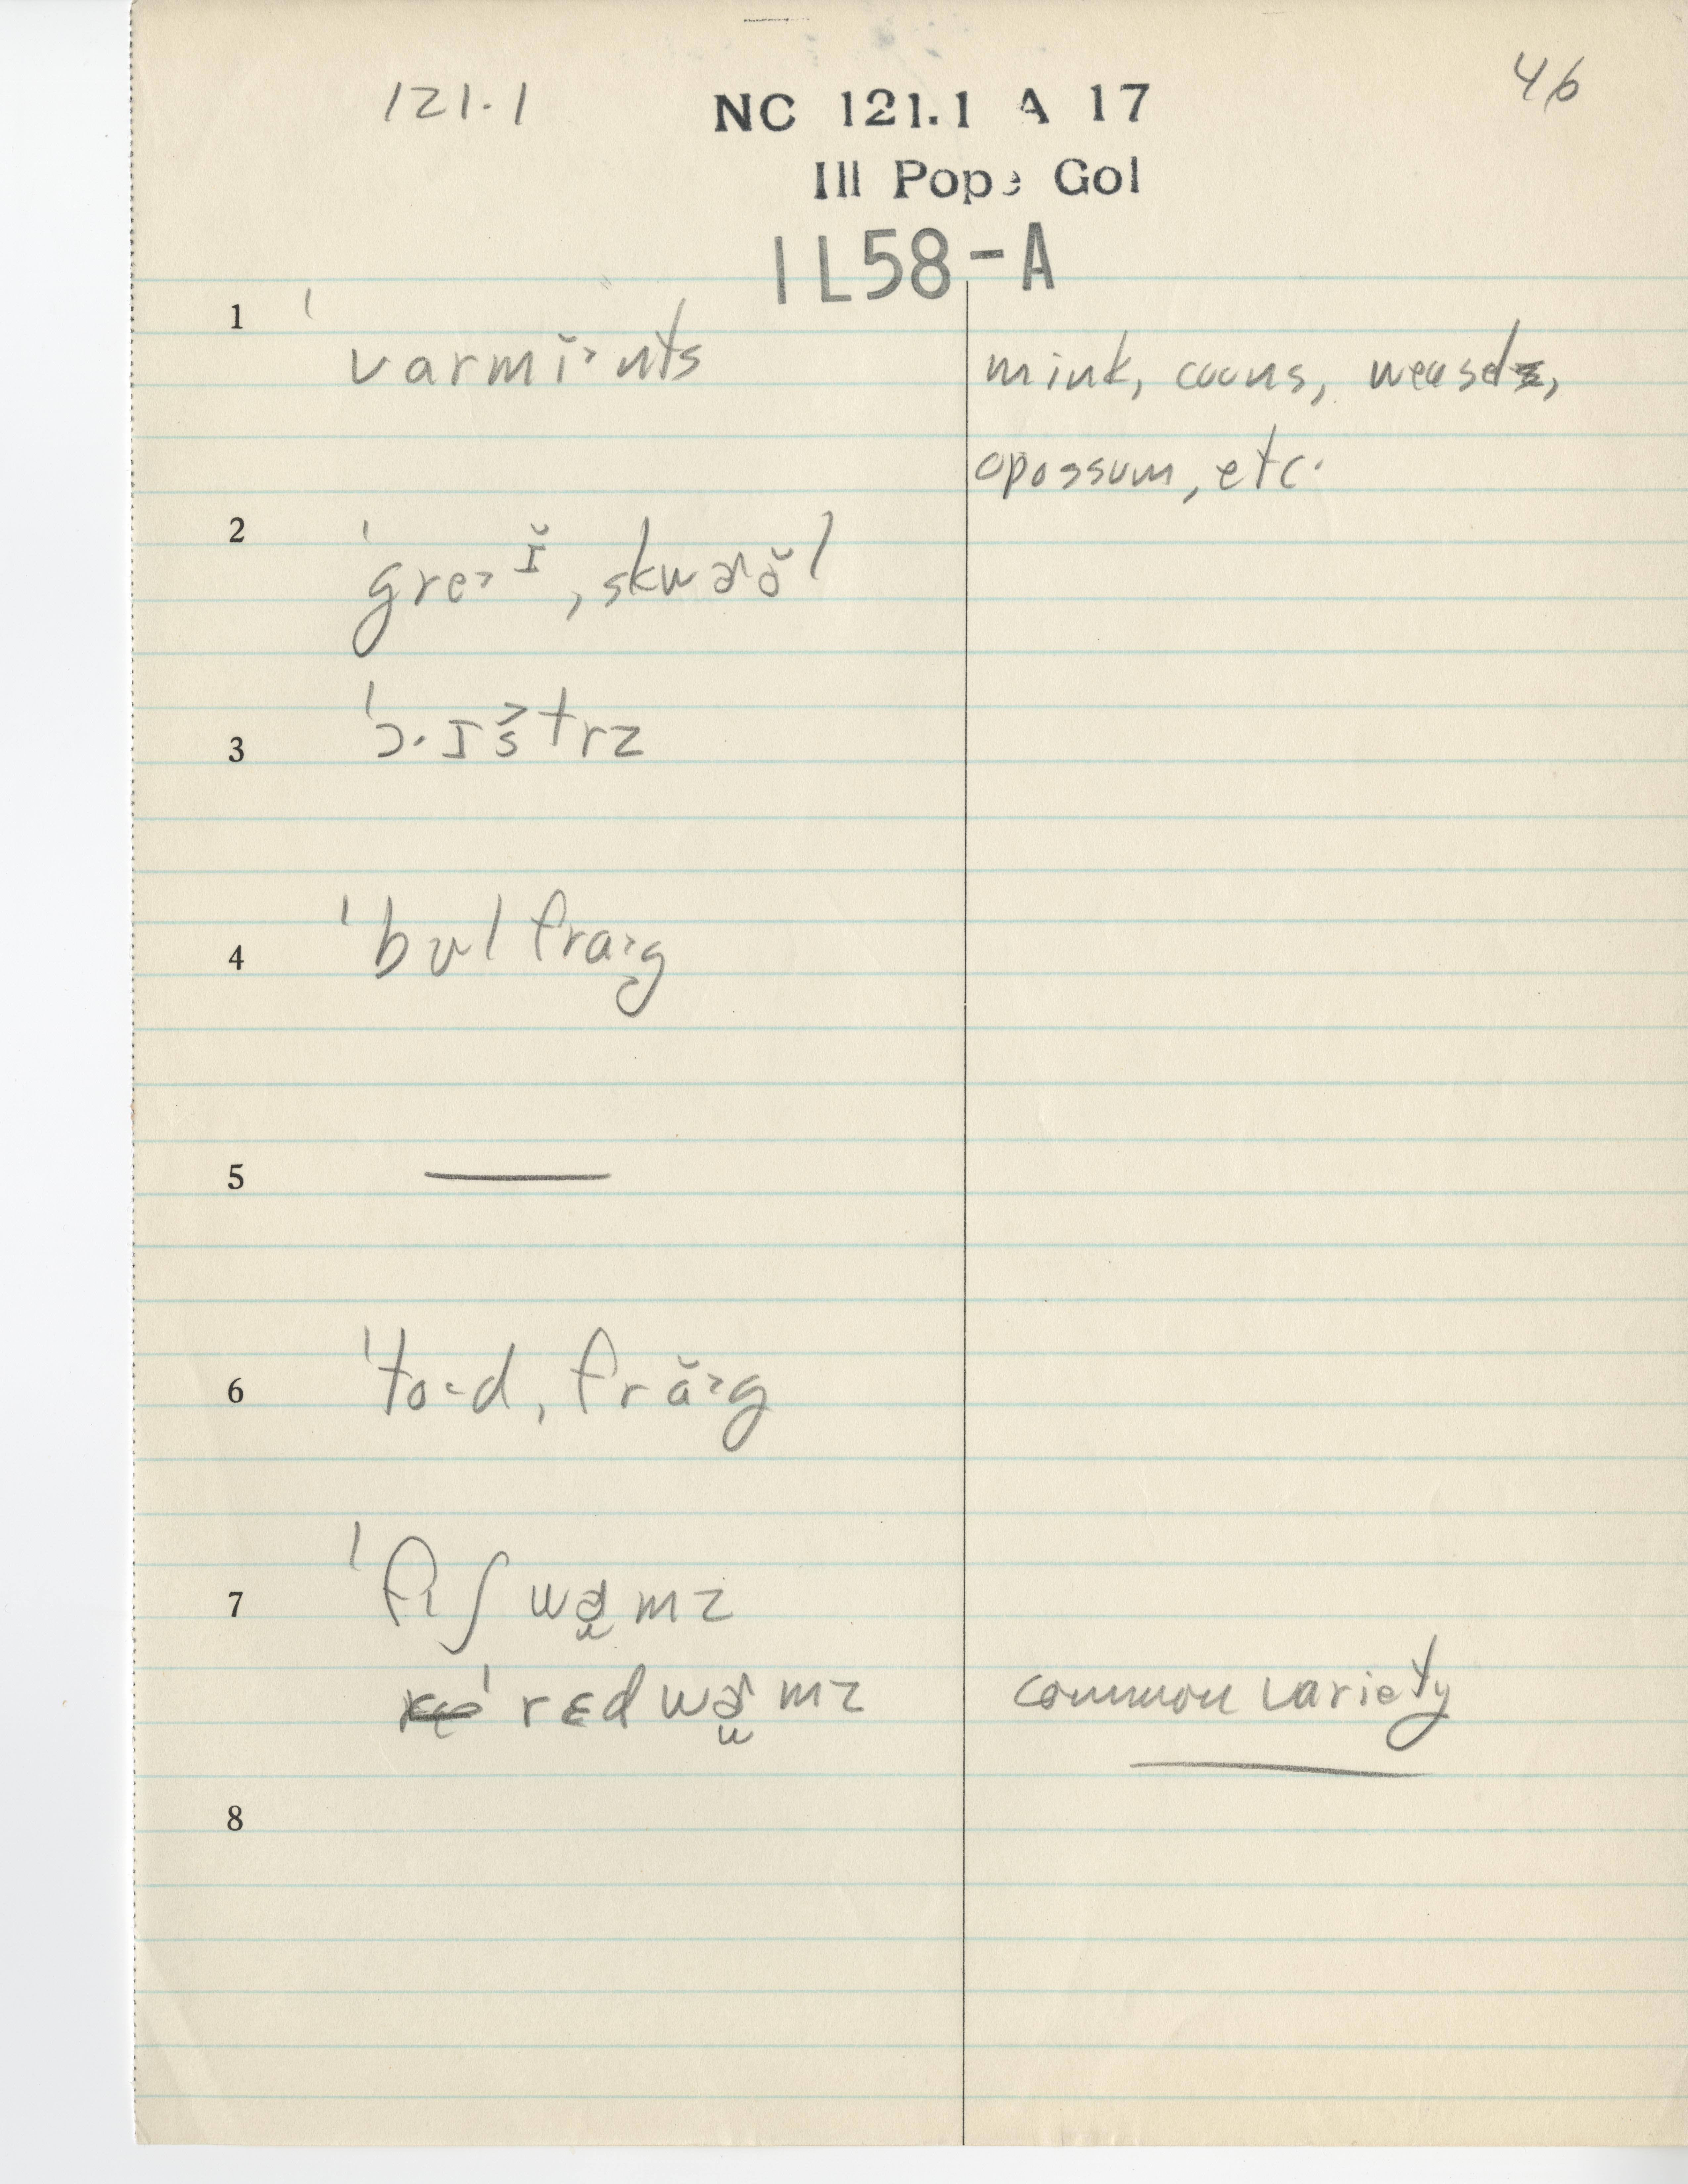 121.1 NC 121.1 A 17 46
Ill Pope Gol
IL58-A
1 ˈvarmĭ˃nts mink, coons, weasels,
opossum, etc.
2 ˈgre˃ĭ, skwɚə̆l
3 ˈɔ·ɪs̆trz
4 ˈbʊl fra˃g
5 ———
6 ˈto·d, fră˃g
7 ˈfɪʃwɚmz
ˈrɛdwɚmz common variety
8